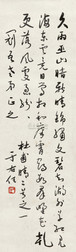 久雨巫山暗新晴錦繡文碧知湖外草紅見
海東雲竟日鶯相和摩霄鶴數群野花乾
更落風處急紛紛
正之
杜甫晴二首之一
于右任